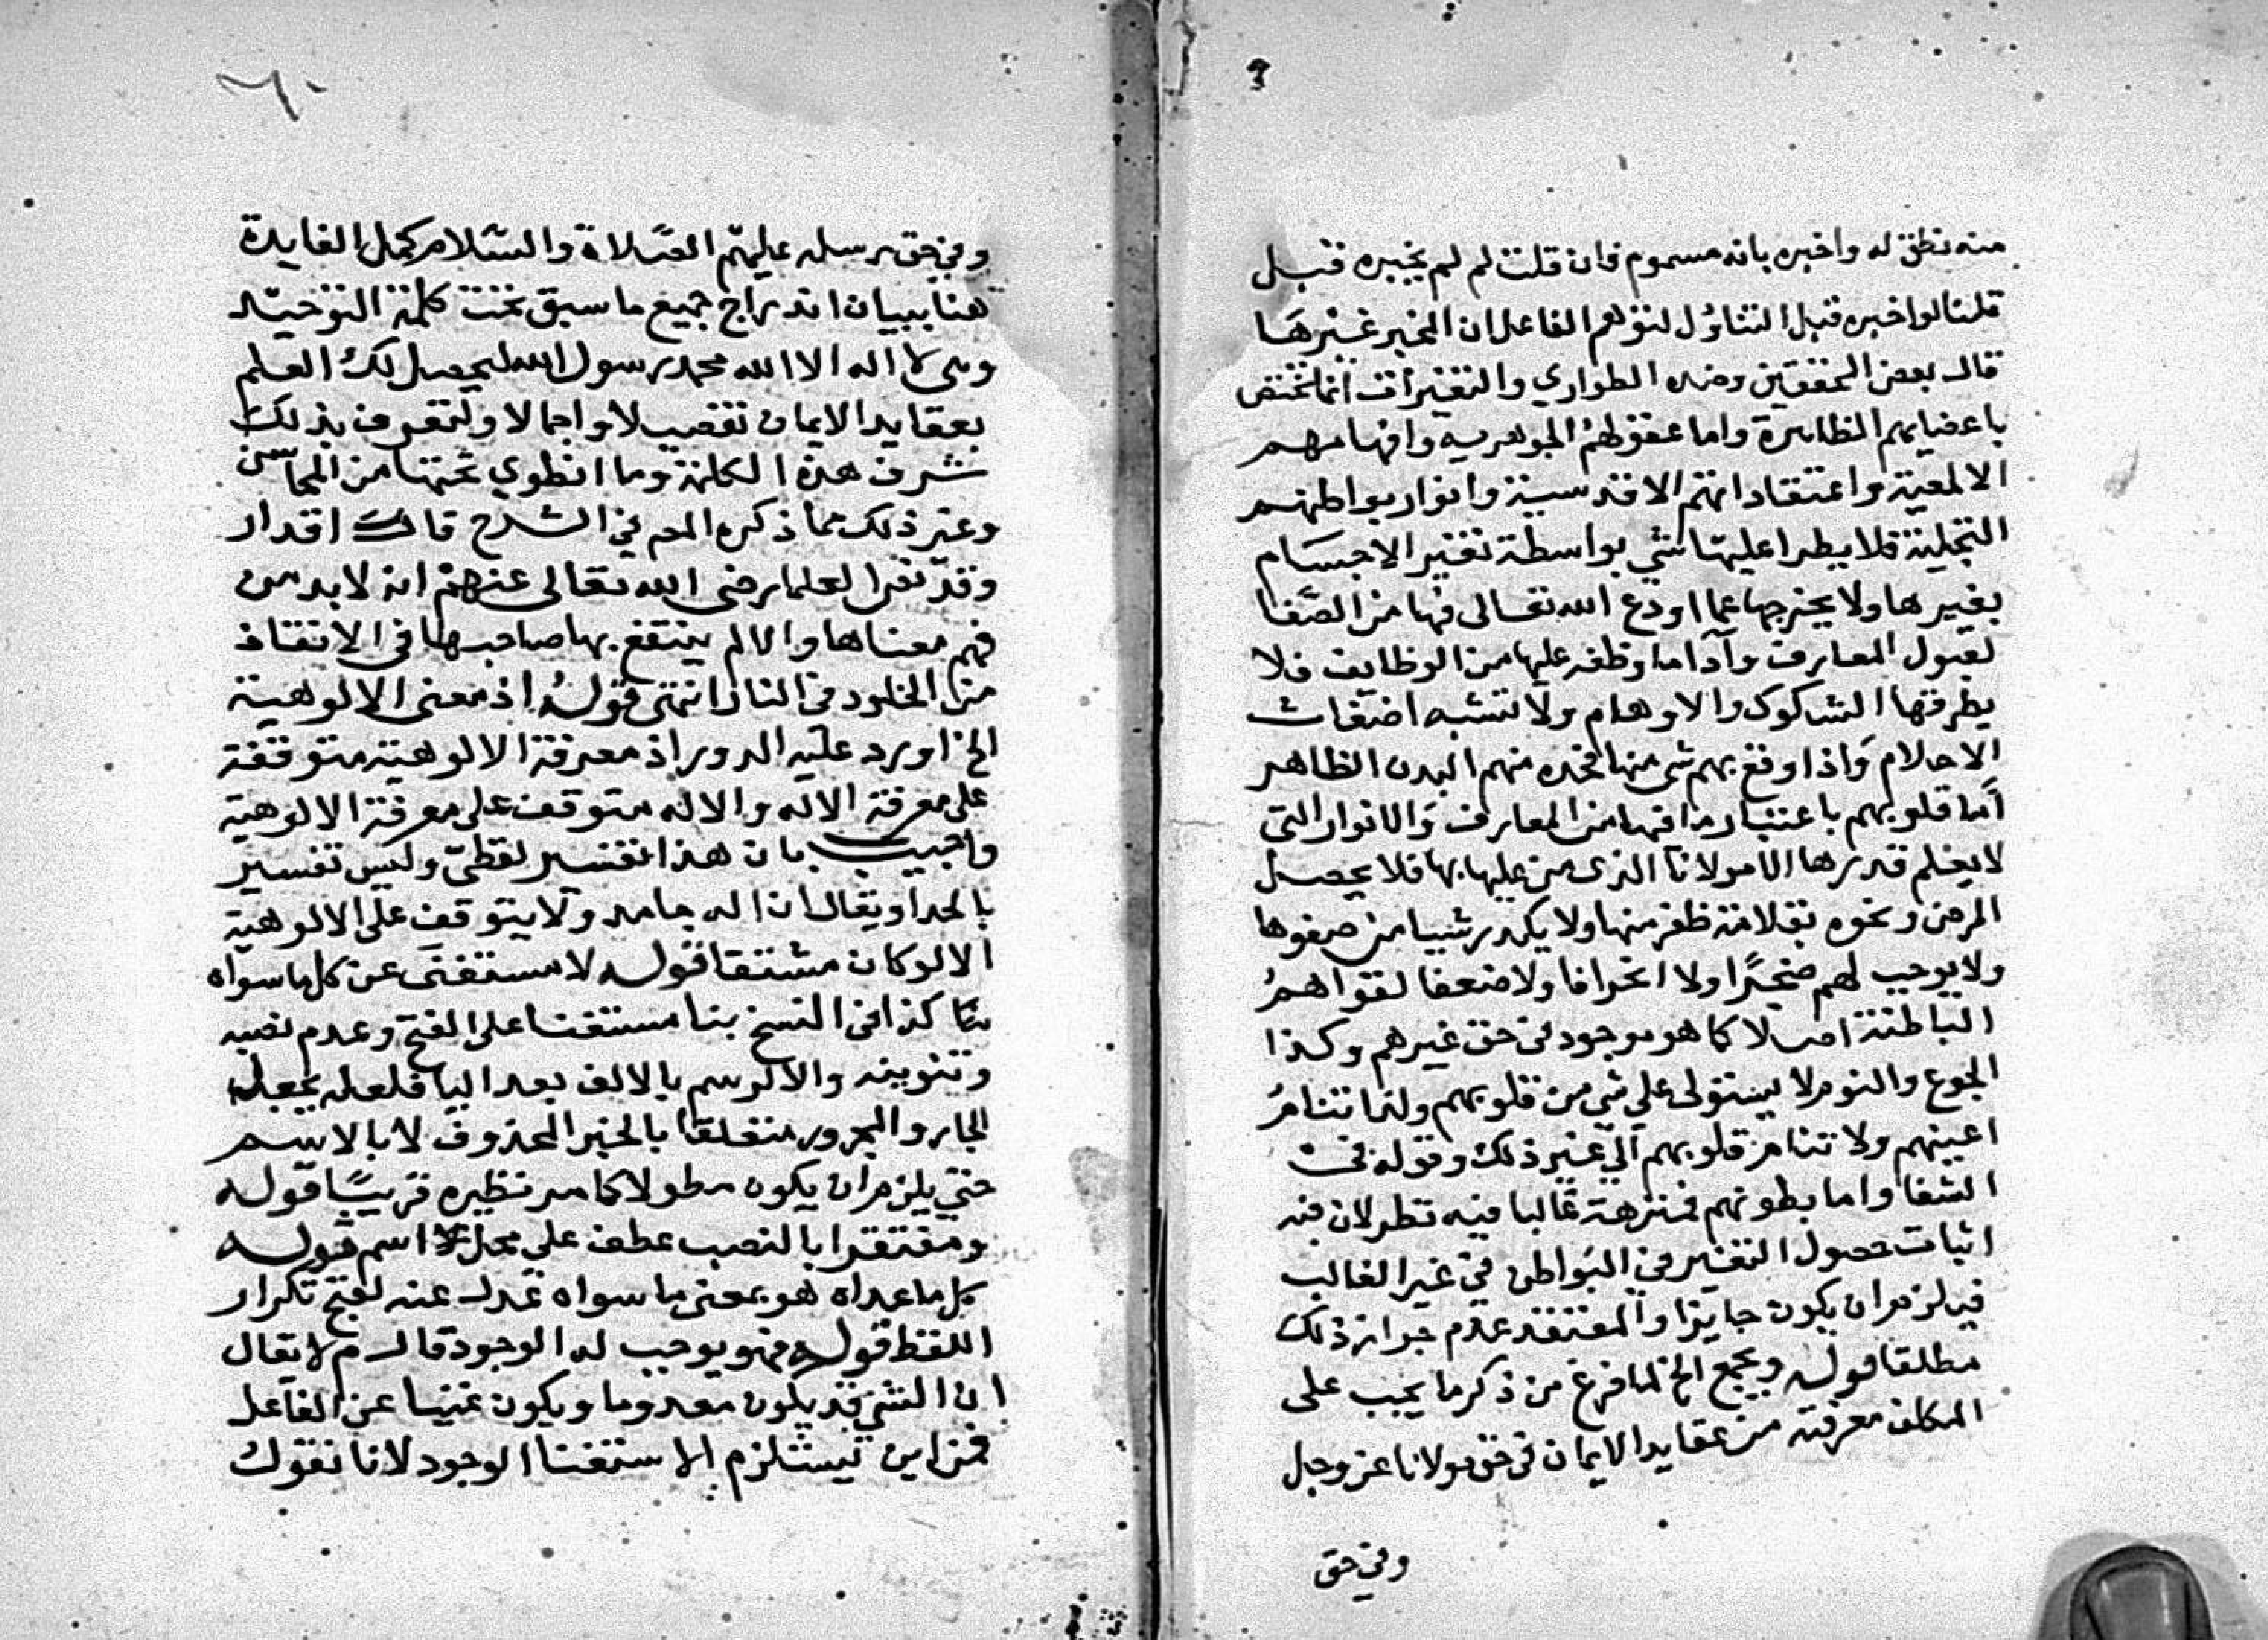 منه نطق له واخبره بانه مسموم فان قلت لم لم يخبره قبل
قلنا لو اخبره قبل التناول لتوهم الفاعل ان المخبر غيرها
قال بعض المحققين وهذه الطواري والتغيرات انما تختص
باعضايهم الظاهرة واما عقولهم الجوهرية وافهامهم
الالمعية واعتقاداتهم الاقدسية وانوار بواطنهم
التجلية فلا يطرا عليها شي بواسطة تغير الاجسام
بغيرها ولا يخرجها عما اودع الله تعالى فيها من الصفا
لقبول المعارف وآداء ما وظف عليها من الوظايف فلا
يطرقها الشكوك والاوهام ولا تشبه اضغاث
الاحلام واذا وقع بهم شي منها فحده منهم البدن الظاهر
أما قلوبهم باعتبار ما فيها من المعارف والانوار التي
لا يعلم قدرها الا مولانا الذي من عليها بها فلا يحصل
المرض ونحوه بقلامة ظفر منها ولا يكدر شيا من صفوها
ولا يوجب لهم ضجرا ولا انحرافا ولا ضعفا لقواهم
الباطنة اصلا كما هو موجود في حق غيرهم وكذا
الجوع والنوم لا يستولى على شي من قلوبهم ولذا تنام
اعينهم ولا تنام قلوبهم الي غير ذلك وقوله في
الشفا واما بطونهم فمنزهة غالبا فيه نظر لان فيه
اثبات حصول التغير في البواطن في غير الغالب
فيلزم ان يكون جايزا والمعتقد عدم جواز ذلك
مطلقا قوله ويجمع الخ لما فرغ من ذكر ما يجب على
المكلف معرفته من عقايد الايمان في حق مولانا عز وجل
وفي حق
٦٠
وفي حق رسله عليهم الصلاة والسلام كمل الفايدة
هنا ببيان اندراج جميع ما سبق تحت كلمة التوحيد
وهي لا اله الا الله محمد رسول الله ليحصل لك العلم
بعقايد الايمان تفصيلا واجمالا ولتعرف بذلك
شرف هذه الكلمة وما انطوي تحتها من المحاسن
وغير ذلك مما ذكره المص في الشرح قال اقدار
وقد نص العلما رضى الله تعالى عنهم انه لا بد من
فهم معناها والا لم ينتفع بها صاحبها في الانقاذ
من الخلود في النار انتهى قوله اذ معنى الالوهية
الخ اورد عليه الدور اذ معرفة الالوهية متوقفة
على معرفة الاله والاله متوقف على معرفة الالوهية
واجيب بان هذا تفسير لفظي وليس تفسير
بالحد او يقال ان اله جامد ولا يتوقف على الالوهية
الا لو كان مشتقا قوله لا مستغنى عن كل ما سواه
كذا في النسخ بنا مستغنا على الفتح وعدم نصبه
وتنوينه والا لرسم بالالف بعد اليا فلعله يجعل
الجار والمجرور متعلقا بالخبر المحذوف لا بالاسم
حتى يلزم ان يكون مطولا كما مر نظيره قريبا قوله
ومفتقرا بالنصب عطف على محل اسم قوله
كل ما عداه هو بمعنى ما سواه عدل عنه لقبح تكرار
اللفظ قوله فهو يوجب له الوجود قال م لا يقال
ان الشي قد يكون معدوما ويكون غنيا عن الفاعل
فمن اين يستلزم الاستغنا الوجود لانا نقول